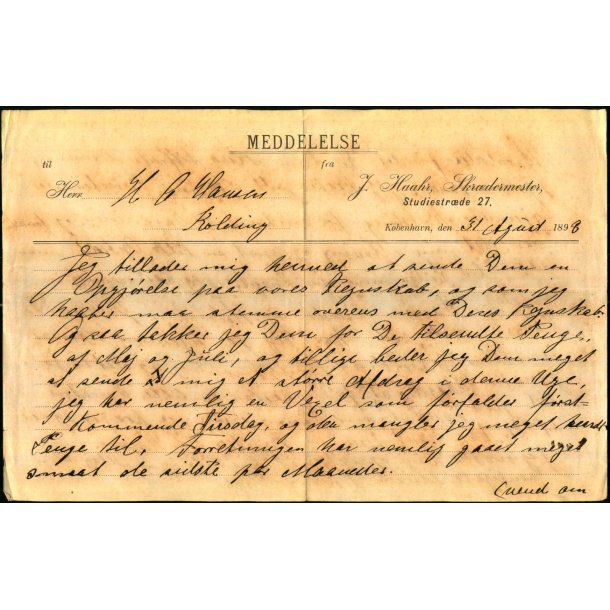 MEDDELELSE
til
fra
Herr H P Hansen
Kolding
J. Haahr, Skrædermester,
Studiestræde 27.
København, den 31 Agust 1898
Jeg tillader mig hermed at sende Dem en
Opgjørelse paa vores Regnskab, og som jeg
haaber maa stemme overens med Deres Regnskab.
Og saa takker jeg Dem for De tilsendte Penge,
af Maj og Juli, og tillige beder jeg Dem meget
at sende mig et større Afdrag i denne Uge,
jeg har nemlig en Vexel som forfalder først-
kommende Tirsdag, og den mangler jeg meget
Penge til, Forretningen har nemlig gaaet meget
smaat de sidste par Maaneder.
(vend om